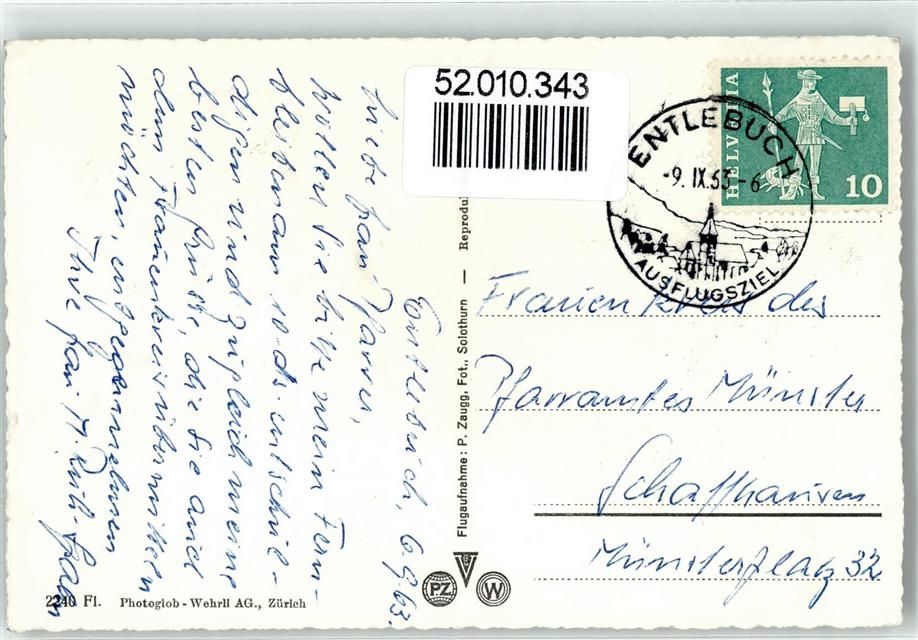 52.010.343
HELVETIA
10
ENTLEBUCH
-9.IX.63-6
AUSFLUGSZIEL
Entlebuch, 6.9.63.
Liebe Frau Pfarrer,
wollen Sie bitte mein Fern-
bleiben am 10. ds. entschul-
digen und zugleich meine
besten Grüsse, die Sie auch
dem Frauenkreis übermitteln
möchten, entgegennehmen
Ihre Frau
Frauenkreis des
Pfarramtes Münster
Schaffhausen
Münsterplatz 32
Flugaufnahme: P. Zaugg, Fot., Solothurn — Reprodu
PZ
W
2240 Fl. Photoglob-Wehrli AG., Zürich